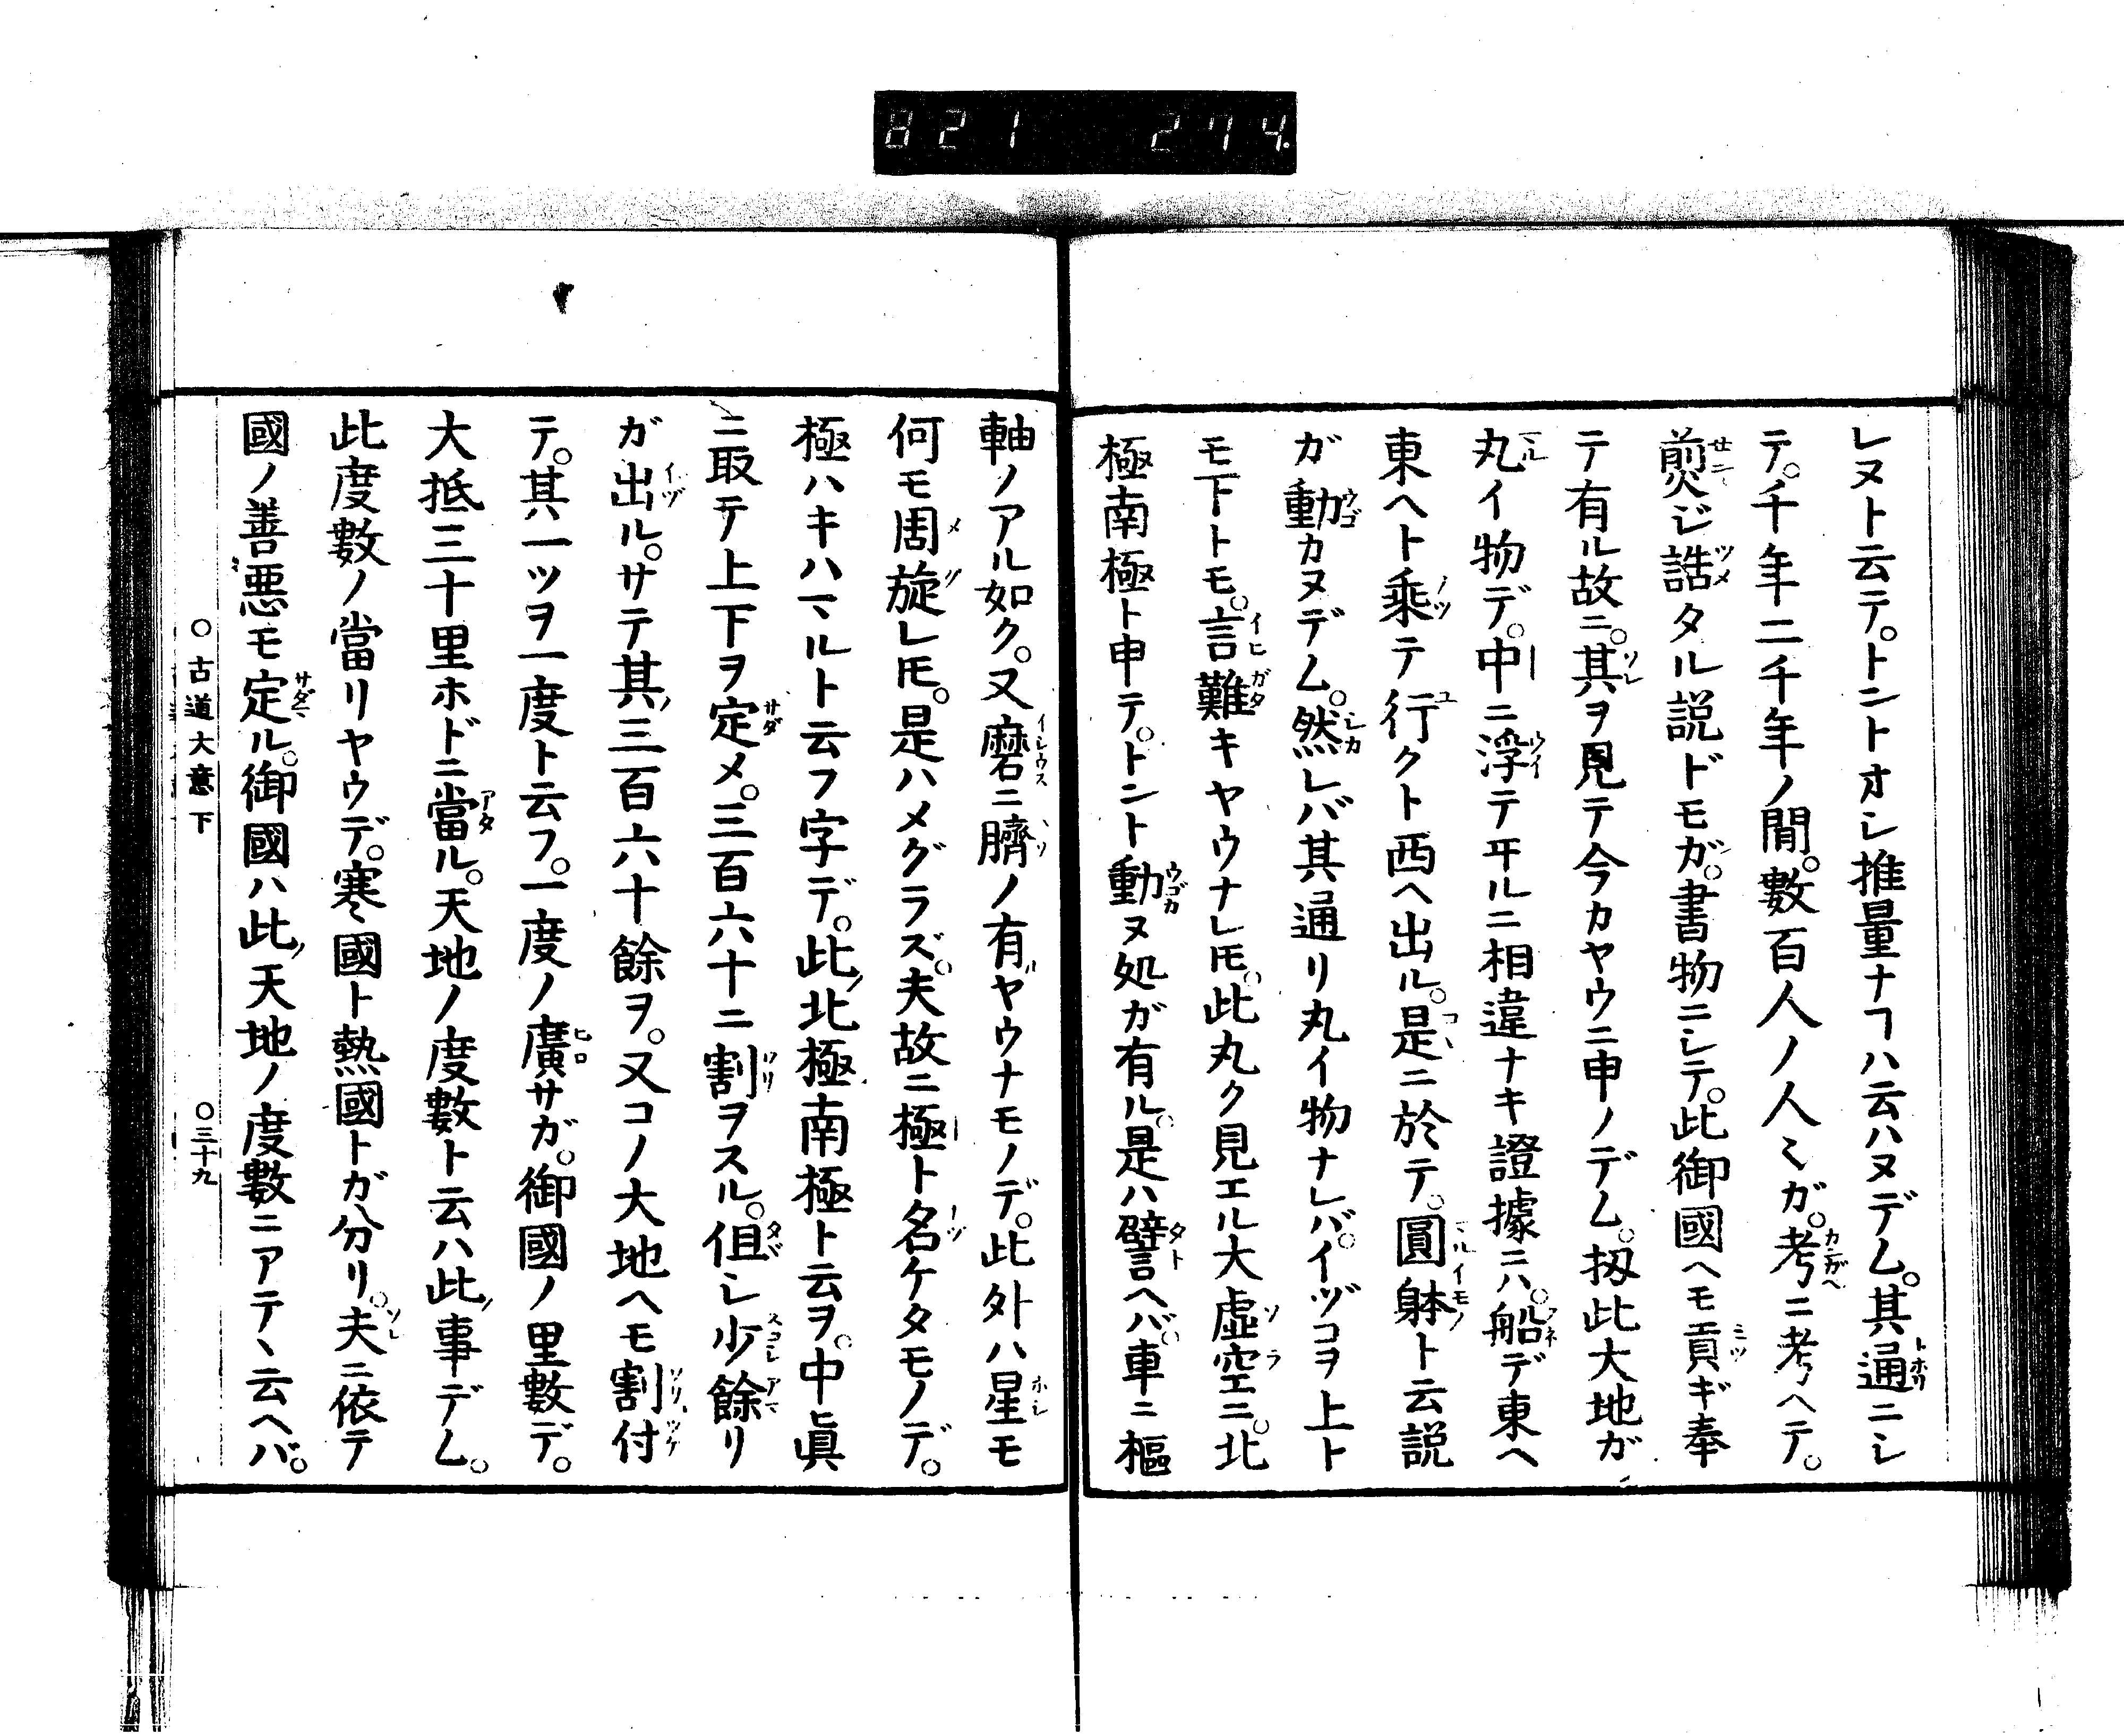 821 274.
レヌト云テ。トントオシ推量ナヿハ云ハヌデム。其通ニシ
テ。千年二千年ノ間。數百人ノ人〻ガ。考ニ考ヘテ。
煎ジ詰タル説ドモガ。書物ニシテ。此御國ヘモ貢ギ奉
テ有ル故ニ。其ヲ見テ今カヤウニ申ノデム。扨此大地ガ
丸イ物デ。中ニ浮テ𪜈ルニ相違ナキ證據ニハ。船デ東ヘ
東ヘト乘テ行クト西ヘ出ル。是ニ於テ。圓躰ト云説
ガ動カヌデム。然レバ其通リ丸イ物ナレバ。イヅコヲ上ト
モ下トモ。言難キヤウナレ𪜈。此丸ク見エル大虚空ニ。北
極南極ト申テ。トント動ヌ処ガ有ル。是ハ譬ヘバ。車ニ樞
軸ノアル如ク。又磨ニ臍ノ有ヤウナモノデ。此外ハ星モ
何モ周旋レ𪜈。是ハメグラズ。夫故ニ極ト名ケタモノデ。
極ハキハマルト云フ字デ。此北極南極ト云ヲ。中眞
ニ取テ上下ヲ定メ。三百六十ニ割ヲスル。但シ少餘リ
ガ出ル。サテ其三百六十餘ヲ。又コノ大地ヘモ割付
テ。其一ツヲ一度ト云フ。一度ノ廣サガ。御國ノ里數デ。
大抵三十里ホドニ當ル。天地ノ度數ト云ハ此事デム。
此度數ノ當リヤウデ。寒國ト熱國トガ分リ。夫ニ依テ
國ノ善惡モ定ル。御國ハ此天地ノ度數ニアテヽ云ヘバ。
○古道大意下 ○三十九